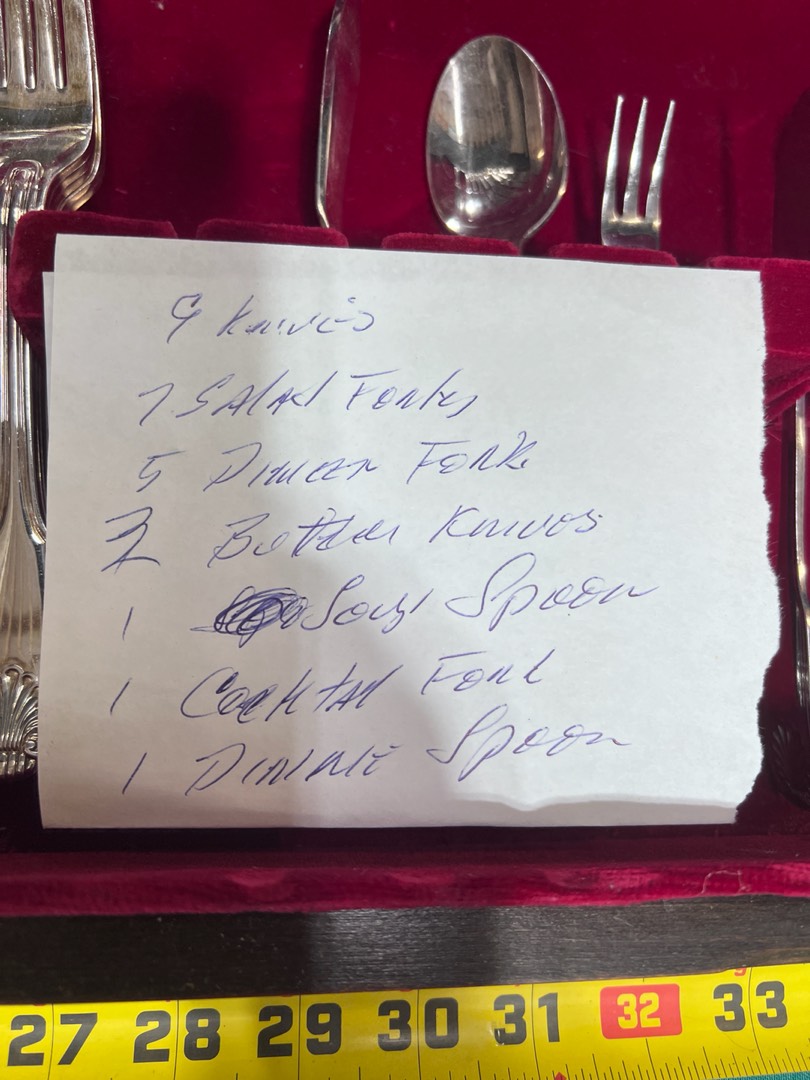 9 Knives
7 Salad Forks
5 Dinner Fork
Butter Knives
1 Soup Spoon
1 Cocktail Fork
1 Dinner Spoon
27 28 29 30 31 32 33